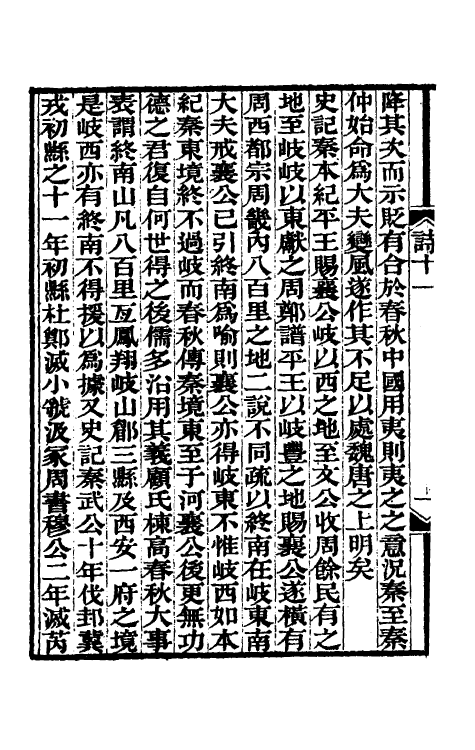 降其次而示貶有合於春秋中國用夷則夷之之意況秦至秦
仲始命爲大夫變風遂作其不足以處魏唐之上明矣
史記秦本紀平王賜襄公岐以西之地至文公收周餘民有之
地至岐岐以東獻之周鄭譜平王以岐豐之地賜襄公遂橫有
周西都宗周畿內八百里之地二說不同疏以終南在岐東南
大夫戒襄公已引終南爲喻則襄公亦得岐東不惟岐西如本
紀秦東境終不過岐而春秋傳秦境東至于河襄公後更無功
德之君復自何世得之後儒多沿用其義顧氏棟高春秋大事
表謂終南山凡八百里亙鳳翔岐山郿三縣及西安一府之境
是岐西亦有終南不得援以爲據又史記秦武公十年伐邽冀
戎初縣之十一年初縣杜鄭滅小虢汲冢周書穆公二年滅芮
詩十一